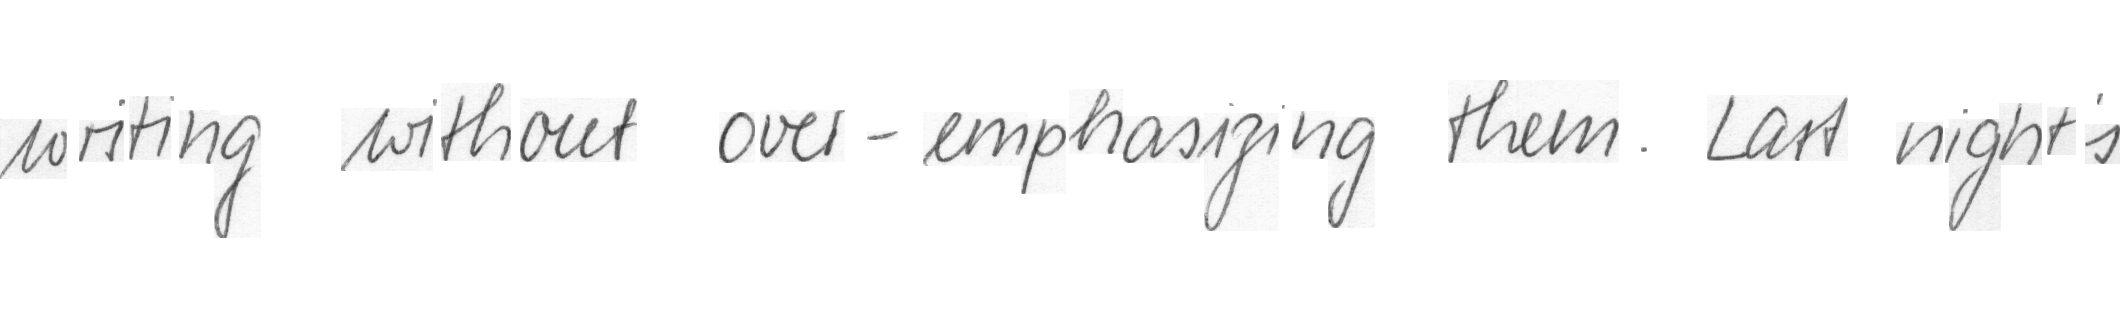 writing without over-emphasizing them. Last night's